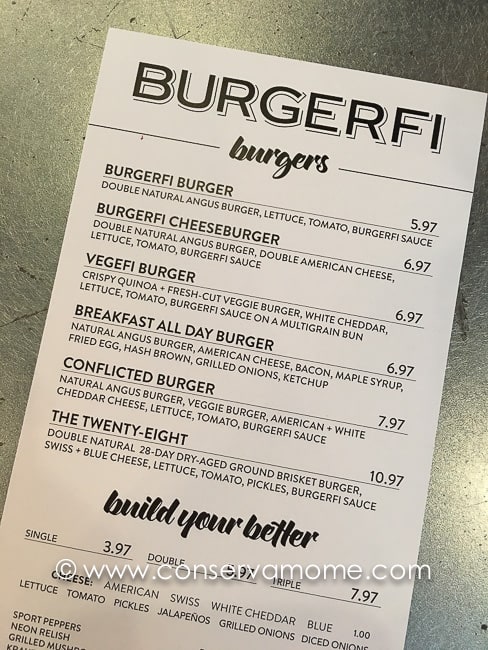 BURGERFI
burgers
BURGERFI BURGER 5.97
DOUBLE NATURAL ANGUS BURGER, LETTUCE, TOMATO, BURGERFI SAUCE
BURGERFI CHEESEBURGER 6.97
DOUBLE NATURAL ANGUS BURGER, DOUBLE AMERICAN CHEESE,
LETTUCE, TOMATO, BURGERFI SAUCE
VEGEFI BURGER 6.97
CRISPY QUINOA + FRESH-CUT VEGGIE BURGER, WHITE CHEDDAR,
LETTUCE, TOMATO, BURGERFI SAUCE ON A MULTIGRAIN BUN
BREAKFAST ALL DAY BURGER 6.97
NATURAL ANGUS BURGER, AMERICAN CHEESE, BACON, MAPLE SYRUP,
FRIED EGG, HASH BROWN, GRILLED ONIONS, KETCHUP
CONFLICTED BURGER 7.97
NATURAL ANGUS BURGER, VEGGIE BURGER, AMERICAN + WHITE
CHEDDAR CHEESE, LETTUCE, TOMATO, BURGERFI SAUCE
THE TWENTY-EIGHT 10.97
DOUBLE NATURAL 28-DAY DRY-AGED GROUND BRISKET BURGER,
SWISS + BLUE CHEESE, LETTUCE, TOMATO, PICKLES, BURGERFI SAUCE
build your better
SINGLE 3.97 DOUBLE 5.97 TRIPLE 7.97
© www.conservamome.com
CHEESE: AMERICAN SWISS WHITE CHEDDAR BLUE 1.00
LETTUCE TOMATO PICKLES JALAPEÑOS GRILLED ONIONS DICED ONIONS
SPORT PEPPERS
NEON RELISH
GRILLED